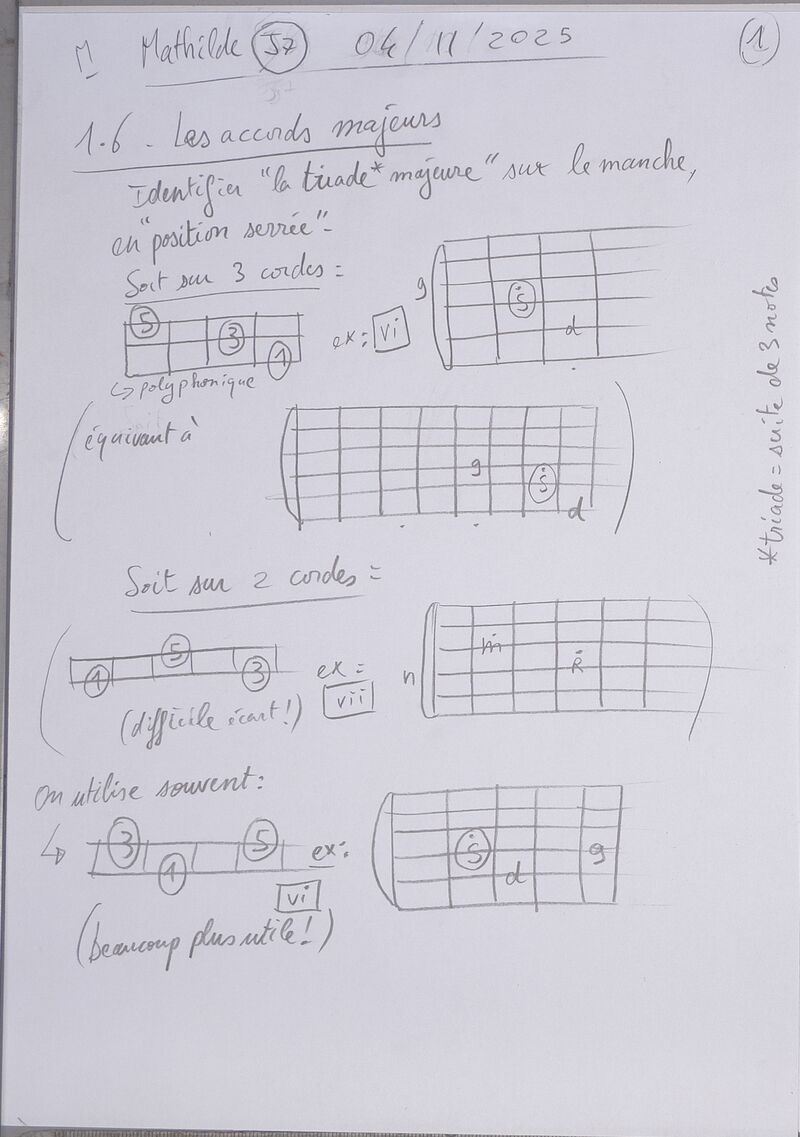 Mathilde J7 04/11/2025 1
1.6 - Les accords majeurs
Identifier "la triade* majeure" sur le manche,
en "position serrée".
Soit sur 3 cordes =
5
3
1
↳ polyphonique
ex: vi
g
d
équivaut à
g
d
Soit sur 2 cordes =
1 5 3
(difficile écart!)
ex =
vii
n
m
R
On utilise souvent:
↳ 3 1 5 ex:
vi
d
g
(beaucoup plus utile!)
*triade = suite de 3 notes